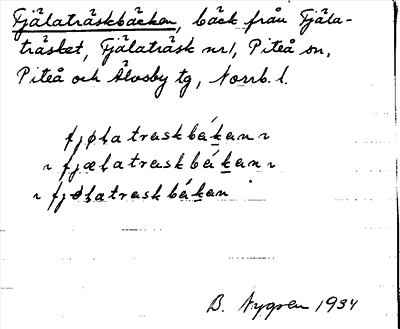 Fjälaträskbäcken, bäck från Fjäla-
träsket, Fjälaträsk nr 1, Piteå sn,
Piteå och Älvsby tg, Norrb. l.
fjøla traskbákan ~
~ fjæla traskbákan ~
~ fjøla traskbákan
B. Nygren 1934